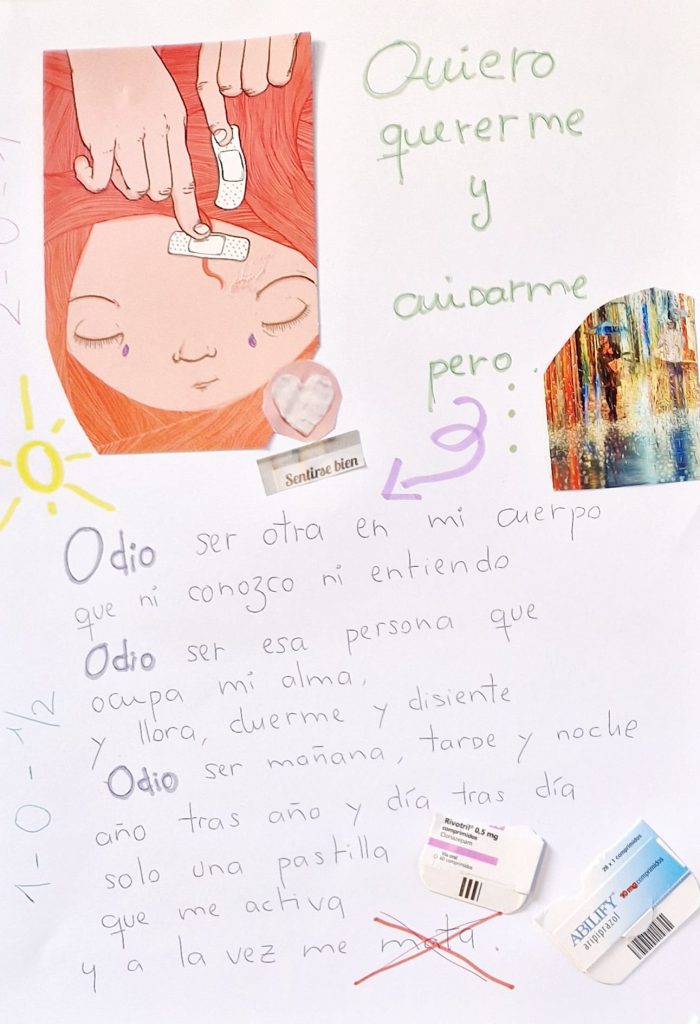 Quiero
quererme
y
cuidarme
pero...
Sentirse bien
Odio ser otra en mi cuerpo
que ni conozco ni entiendo
Odio ser esa persona que
ocupa mi alma,
y llora, duerme y disiente
Odio ser mañana, tarde y noche
año tras año y día tras día
solo una pastilla
que me activa
y a la vez me mata.
Rivotril® 0,5 mg
comprimidos
Clonazepam
Vía oral
60 comprimidos
28 x 1 comprimidos
ABILIFY® 10 mg comprimidos
aripiprazol
2-0-1
1-0-1/2